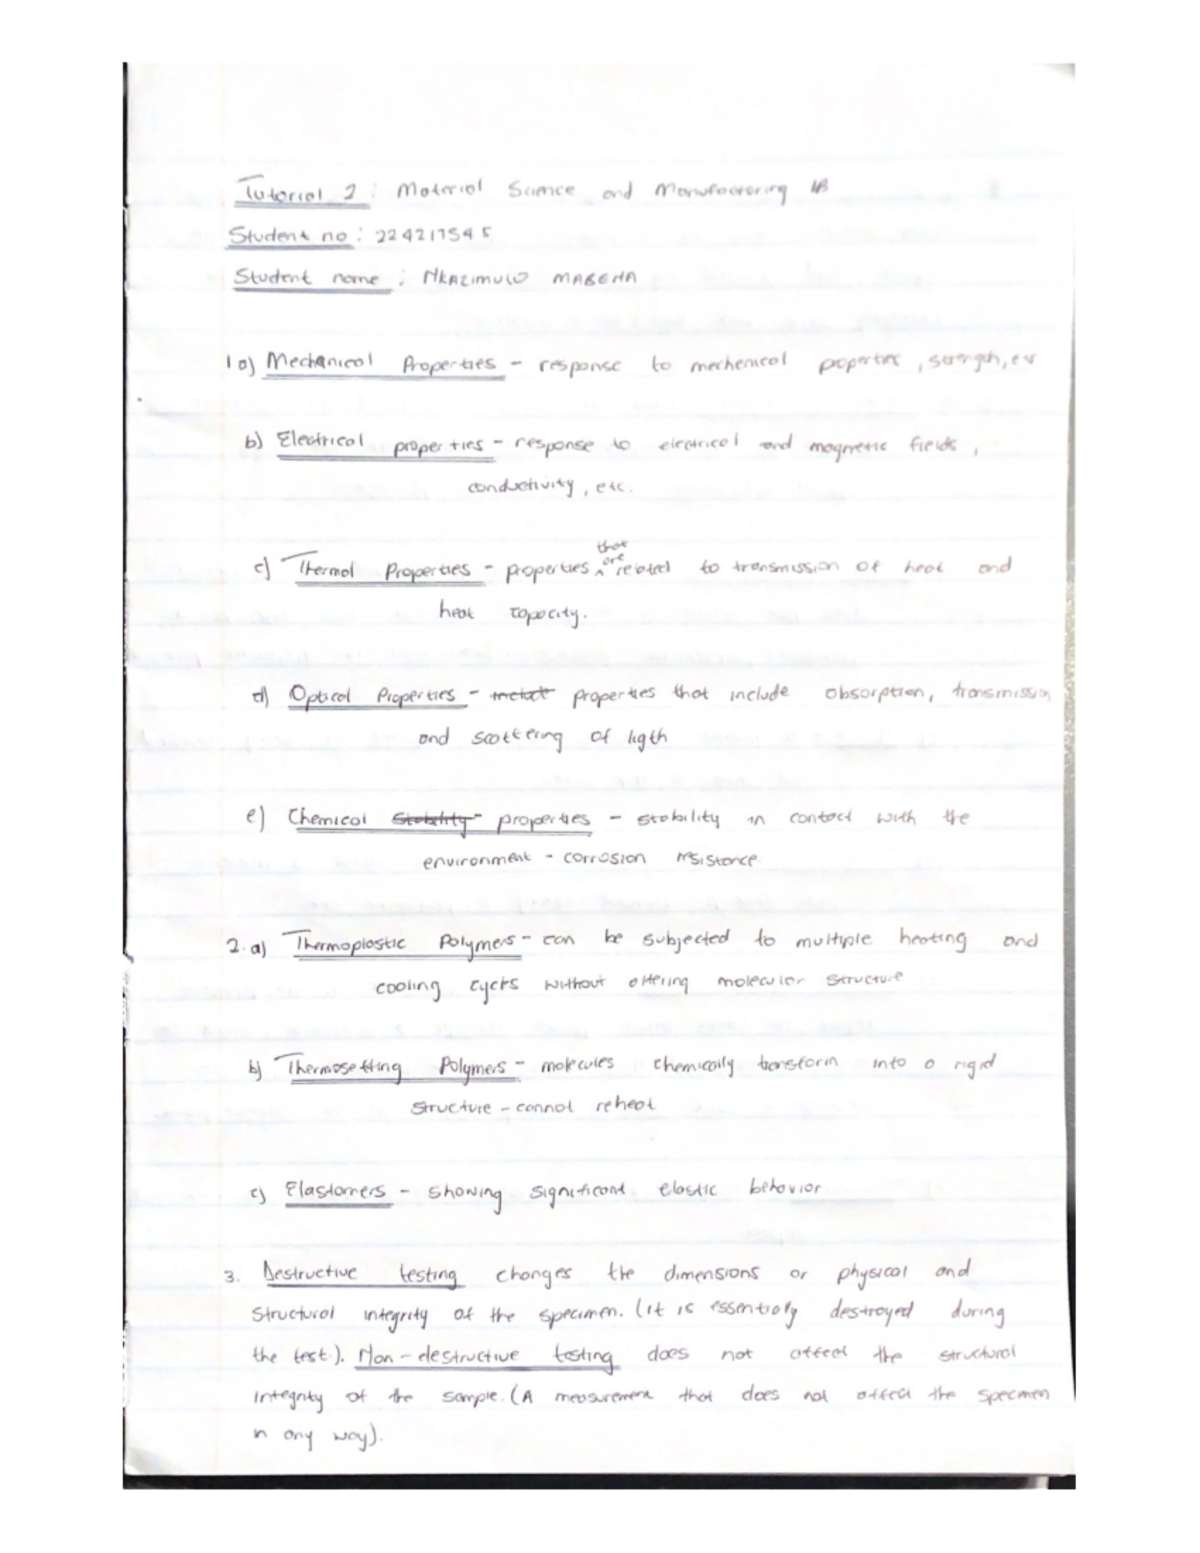 Tutorial 2 : Material Science and Manufactoring 1B
Student no : 224217545
Student name : NKAZIMULO MABENA
1 a) Mechanical Properties - response to mechemical properties, strength, etc
b) Electrical properties - response to electrical and magnetic fields,
conductivity, etc.
that
are
c) Thermal Properties - properties ^ related to transmission of heat and
heat capacity.
d) Optical Properties - properties that include absorption, transmission
and scattering of ligth
e) Chemical Stability properties - stability in contact with the
environment - corrosion resistance.
2. a) Thermoplastic Polymers - can be subjected to multiple heating and
cooling cycles without altering molecular structure
b) Thermosetting Polymers - molecules chemically transform into a rigid
structure - cannot reheat
c) Elastomers - showing significant elastic behavior
3. Destructive testing changes the dimensions or physical and
structural integrity of the specimen. (it is essentially destroyed during
the test). Non-destructive testing does not affect the structural
integrity of the sample. (A measurement that does not affect the specimen
in any way).